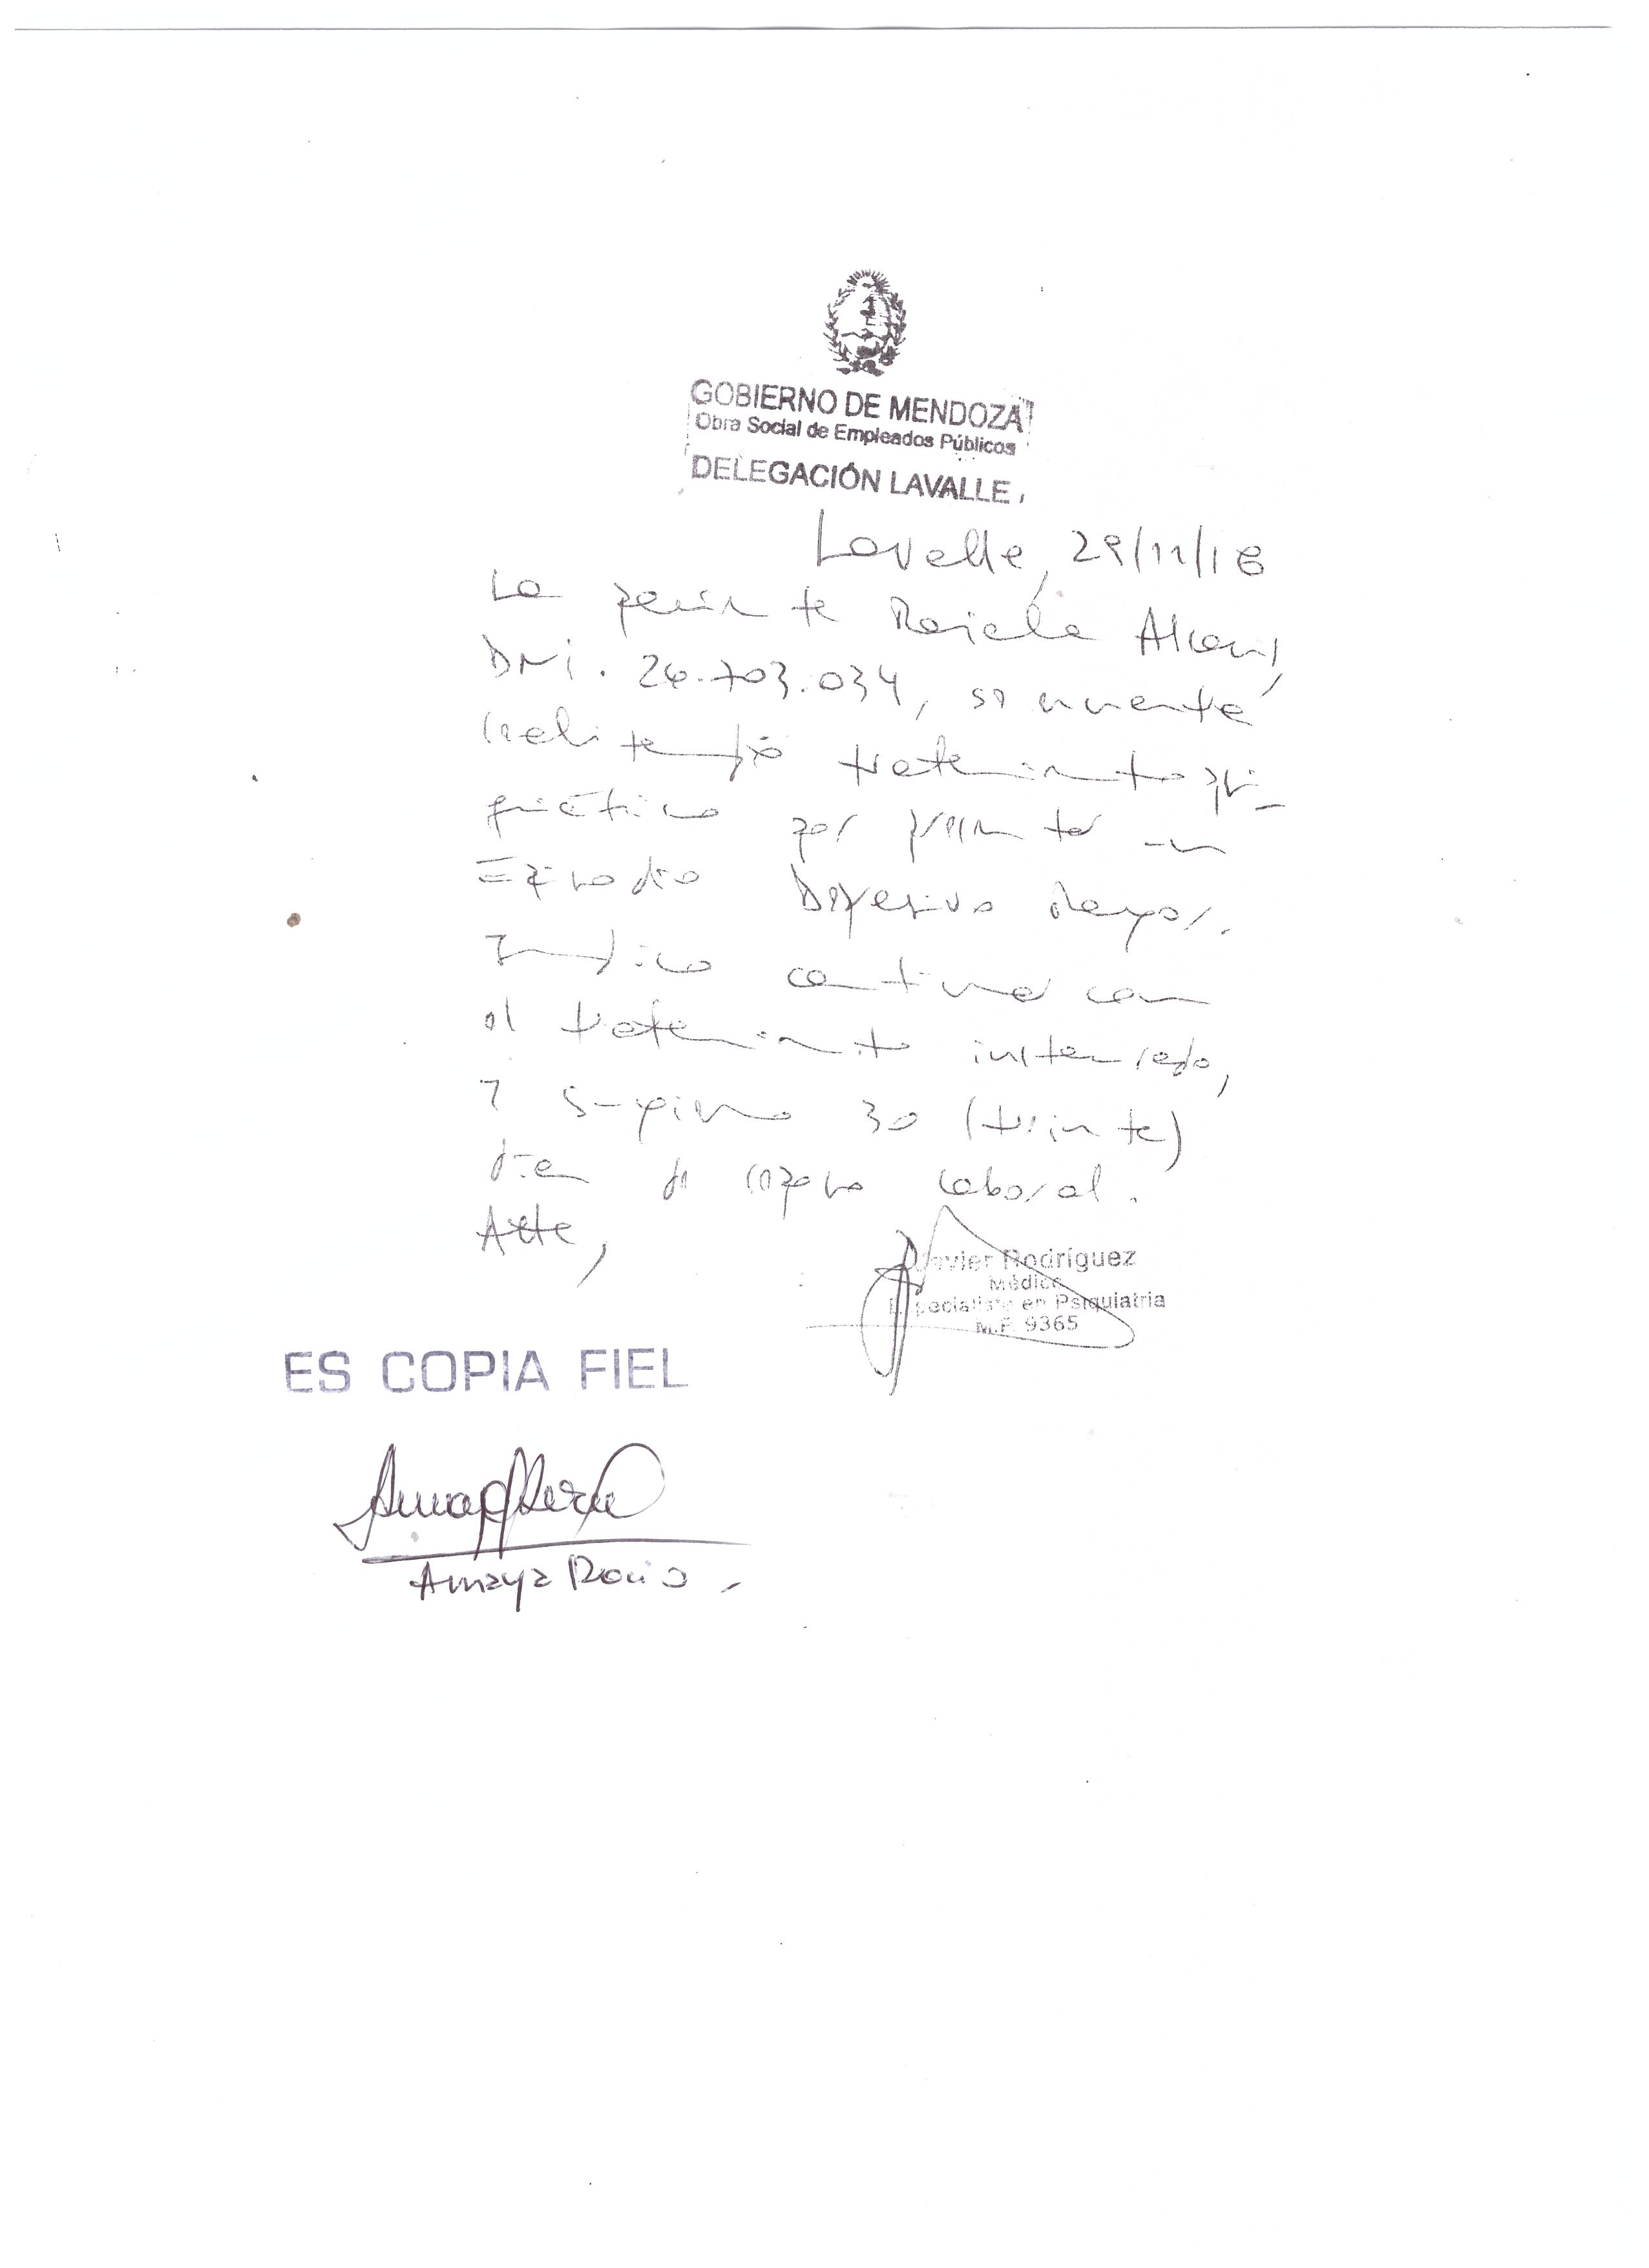 GOBIERNO DE MENDOZA
Obra Social de Empleados Públicos
DELEGACIÓN LAVALLE
Lavalle, 29/11/16
La paciente Alcaraz,
DNI. 26.703.034, se encuentra
realizando tratamiento psi-
quiátrico por presentar un
Episodio Depresivo Mayor.
Indico continuar con
el tratamiento instaurado,
y sugiero 30 (treinta)
días de reposo laboral.
Atte,
Javier Rodríguez
Médico
Especialista en Psiquiatria
M.P. 9365
ES COPIA FIEL
Amaya Rocio